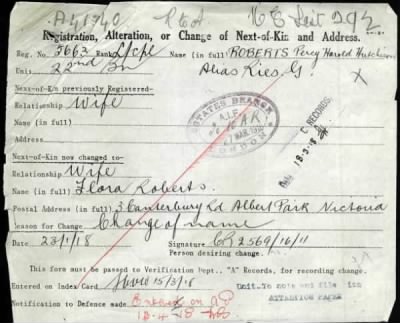 Registration, Alteration, or Change of Next-of-Kin and Address.
Reg. No. 5663 Rank L/Cpl Name (in full) ROBERTS Percy Harold Hutchinson
Unit 22nd Bn Alias Ries G.
Next-of-Kin previously Registered-
Relationship Wife
Name (in full)
Address
ESTATES BRANCH
A.I.F.
MAR 1918
LONDON
RECORDS
18·3·18
Next-of-Kin now changed to-
Relationship Wife
Name (in full) Flora Roberts.
Postal Address (in full) 3 Canterbury Rd Albert Park Victoria
Reason for Change Change of name
Date 23/1/18 Signature CR 2569/16/11
Person desiring change.
This form must be passed to Verification Dept., "A" Records, for recording change.
Entered in Index Card 15/3/18 Unit. To note and file in
ATTESTION PAPER
Notification to Defence made
18-4-18